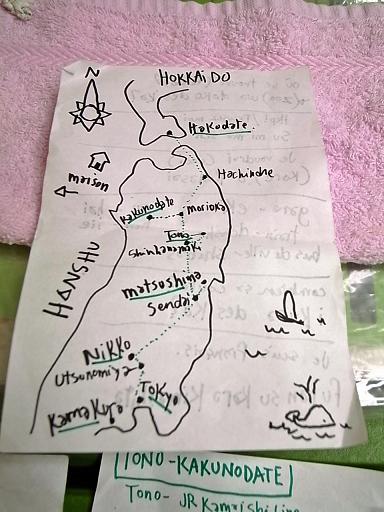 N
HOKKAIDO
Hakodate
maison
Hachinohe
Kakunodate
morioka
Tono
Shinhanamaki
HANSHU
matsushima
Sendai
NiKKO
UTsunomiya
TOKyo
KamaKura
TONO-KAKUNODATE
Tono- JR Kamaishi Line